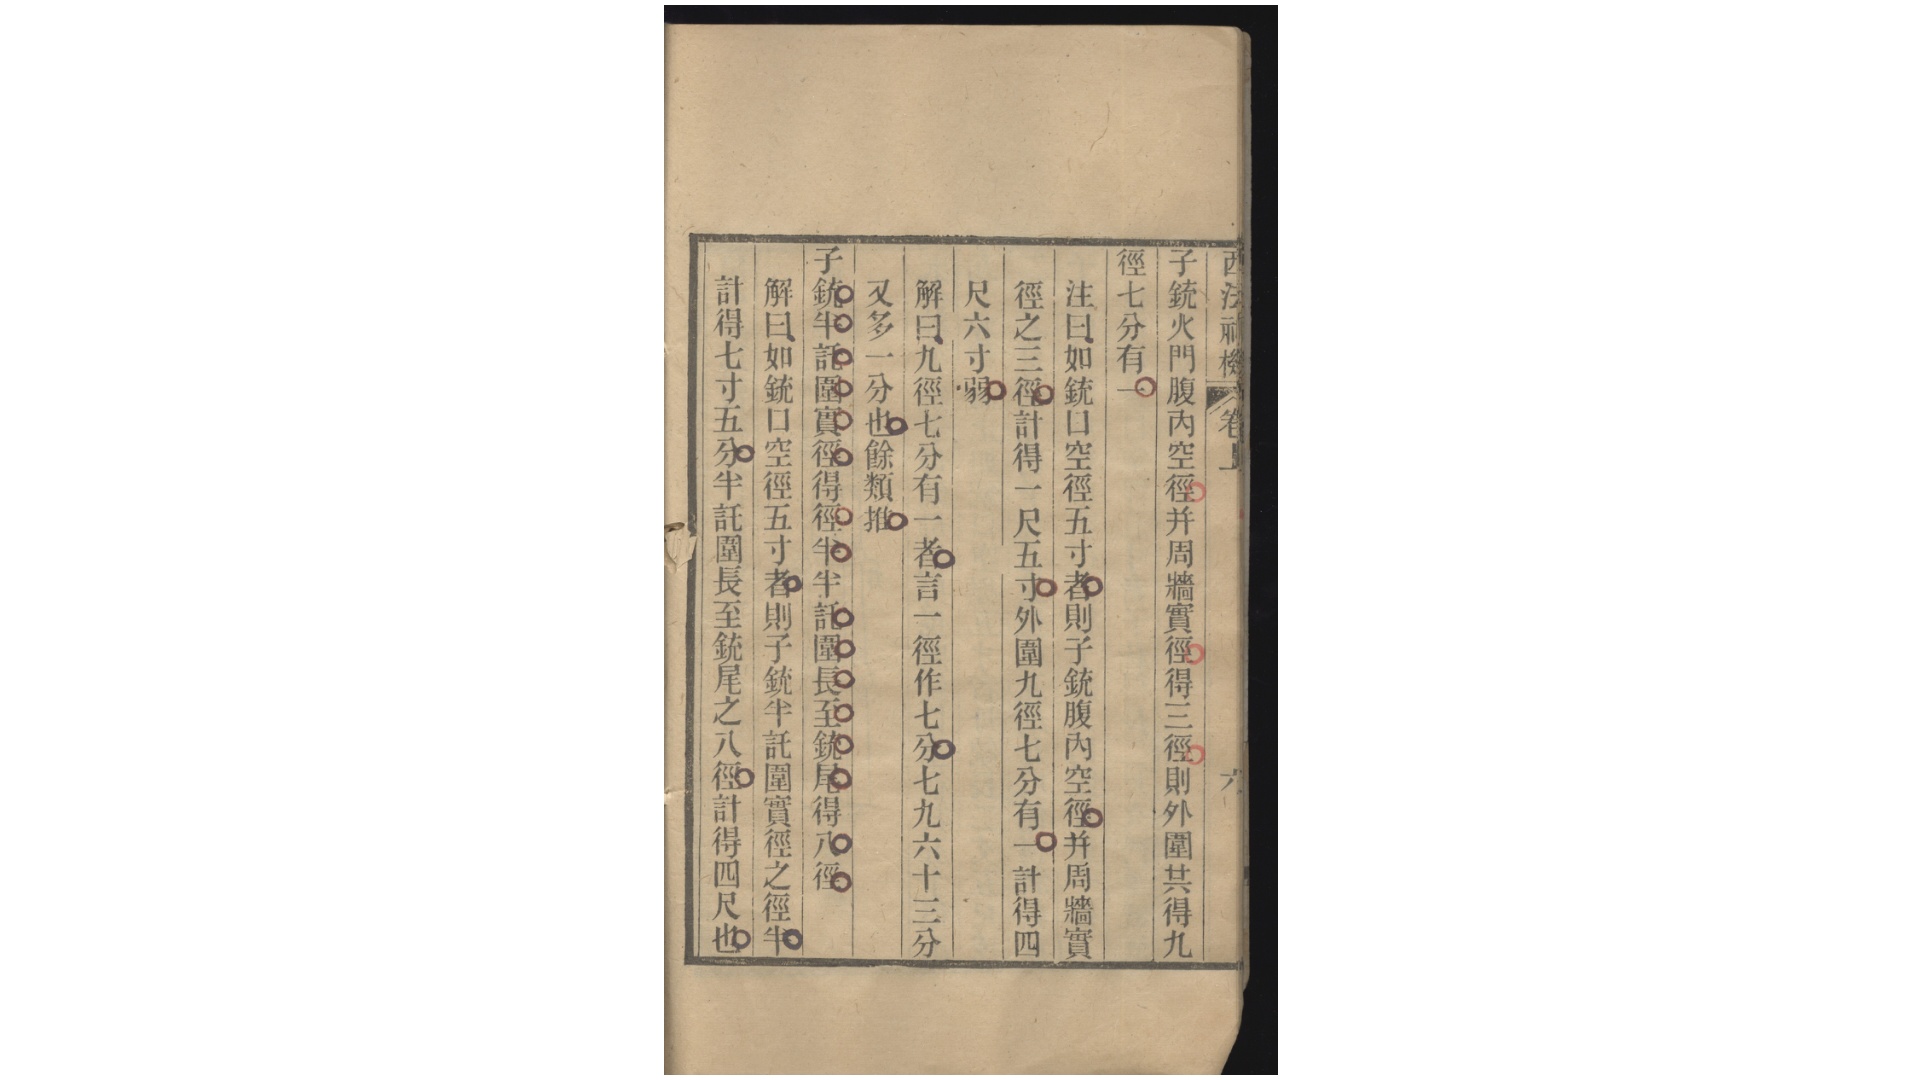 西法神機 卷上 六
子銃火門腹內空徑并周牆實徑得三徑則外圍共得九
徑七分有一
注曰如銃口空徑五寸者則子銃腹內空徑并周牆實
徑之三徑計得一尺五寸外圍九徑七分有一計得四
尺六寸弱
解曰九徑七分有一者言一徑作七分七九六十三分
又多一分也餘類推
子銃半託圍實徑得徑半半託圍長至銃尾得八徑
解曰如銃口空徑五寸者則子銃半託圍實徑之徑半
計得七寸五分半託圍長至銃尾之八徑計得四尺也